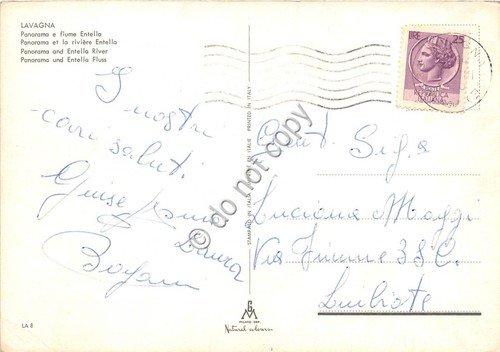 LAVAGNA
Panorama e fiume Entella
Panorama et la rivière Entella
Panorama and Entella River
Panorama und Entella Fluss
I nostri
cari saluti
Giuseppina
& Laura
STAMPATO IN ITALIE
PRINTED IN ITALY
LIRE 25
Gent. Sig.a
Luciana Maggi
Via Fiume 38 C.
do not copy
MILANO DEP.
Natural colours
LA 8